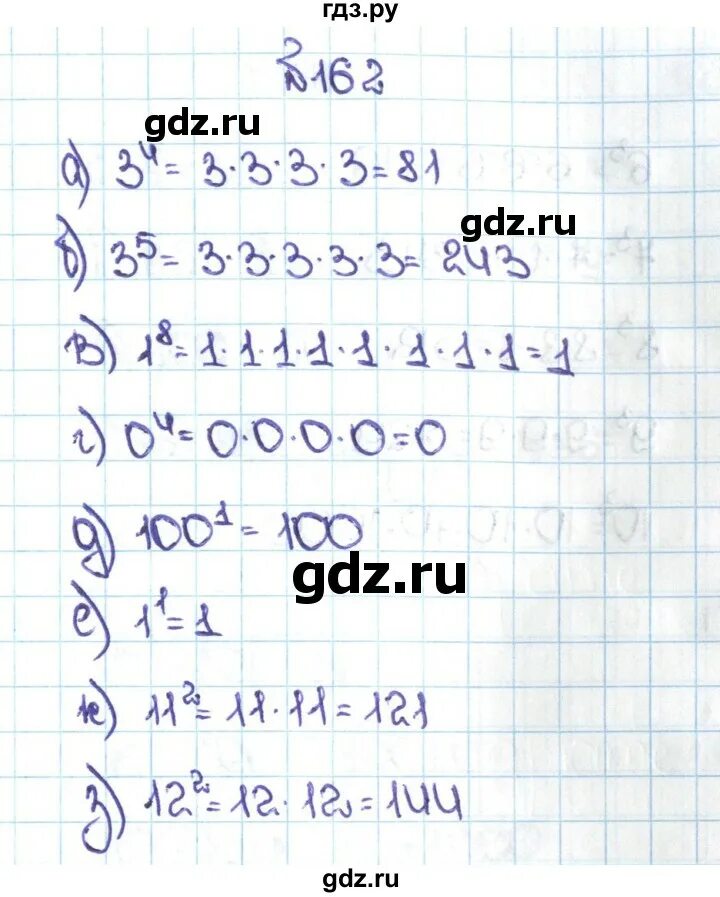 гдз.ру
№162
gdz.ru
а) 3⁴ = 3·3·3·3 = 81
gdz.ru
б) 3⁵ = 3·3·3·3·3 = 243
в) 1⁸ = 1·1·1·1·1·1·1·1 = 1
г) 0⁴ = 0·0·0·0 = 0
д) 100¹ = 100
gdz.ru
е) 1¹ = 1
ж) 11² = 11·11 = 121
з) 12² = 12·12 = 144
gdz.ru